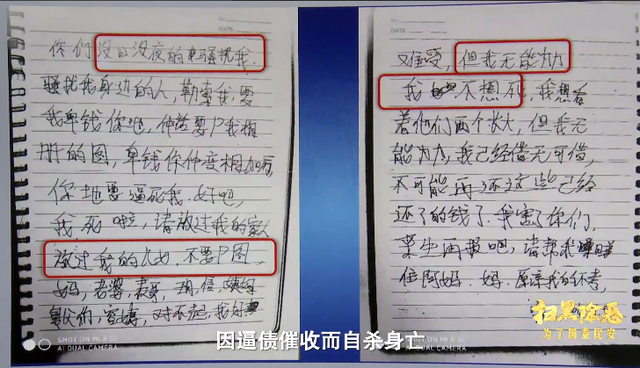 DATE
你们没日没夜的骚扰我,
骚扰我身边的人,勒索我,要
我卑钱你地,仲话要P我相
册的图,卑钱你仲变相加
你地要逼死我,好吧,
我死啦,请放过我的家人
放过我的儿女,不要P图
妈,老婆,表哥,
对不起,我
SHOT ON MI
AI DUAL CAMERA
DATE
难受,但我无能力
我不想死,我想看
着他们两个长大,但我无
能力,我已经借无可借,
不可能再还这些已经
还了的钱了,我害了你们,
来生再报吧,请帮我
住阿妈,妈,原谅我的不孝,
SHOT ON MI
AI DUAL CAMERA
扫黑除恶
为了国泰民安
因逼债催收而自杀身亡